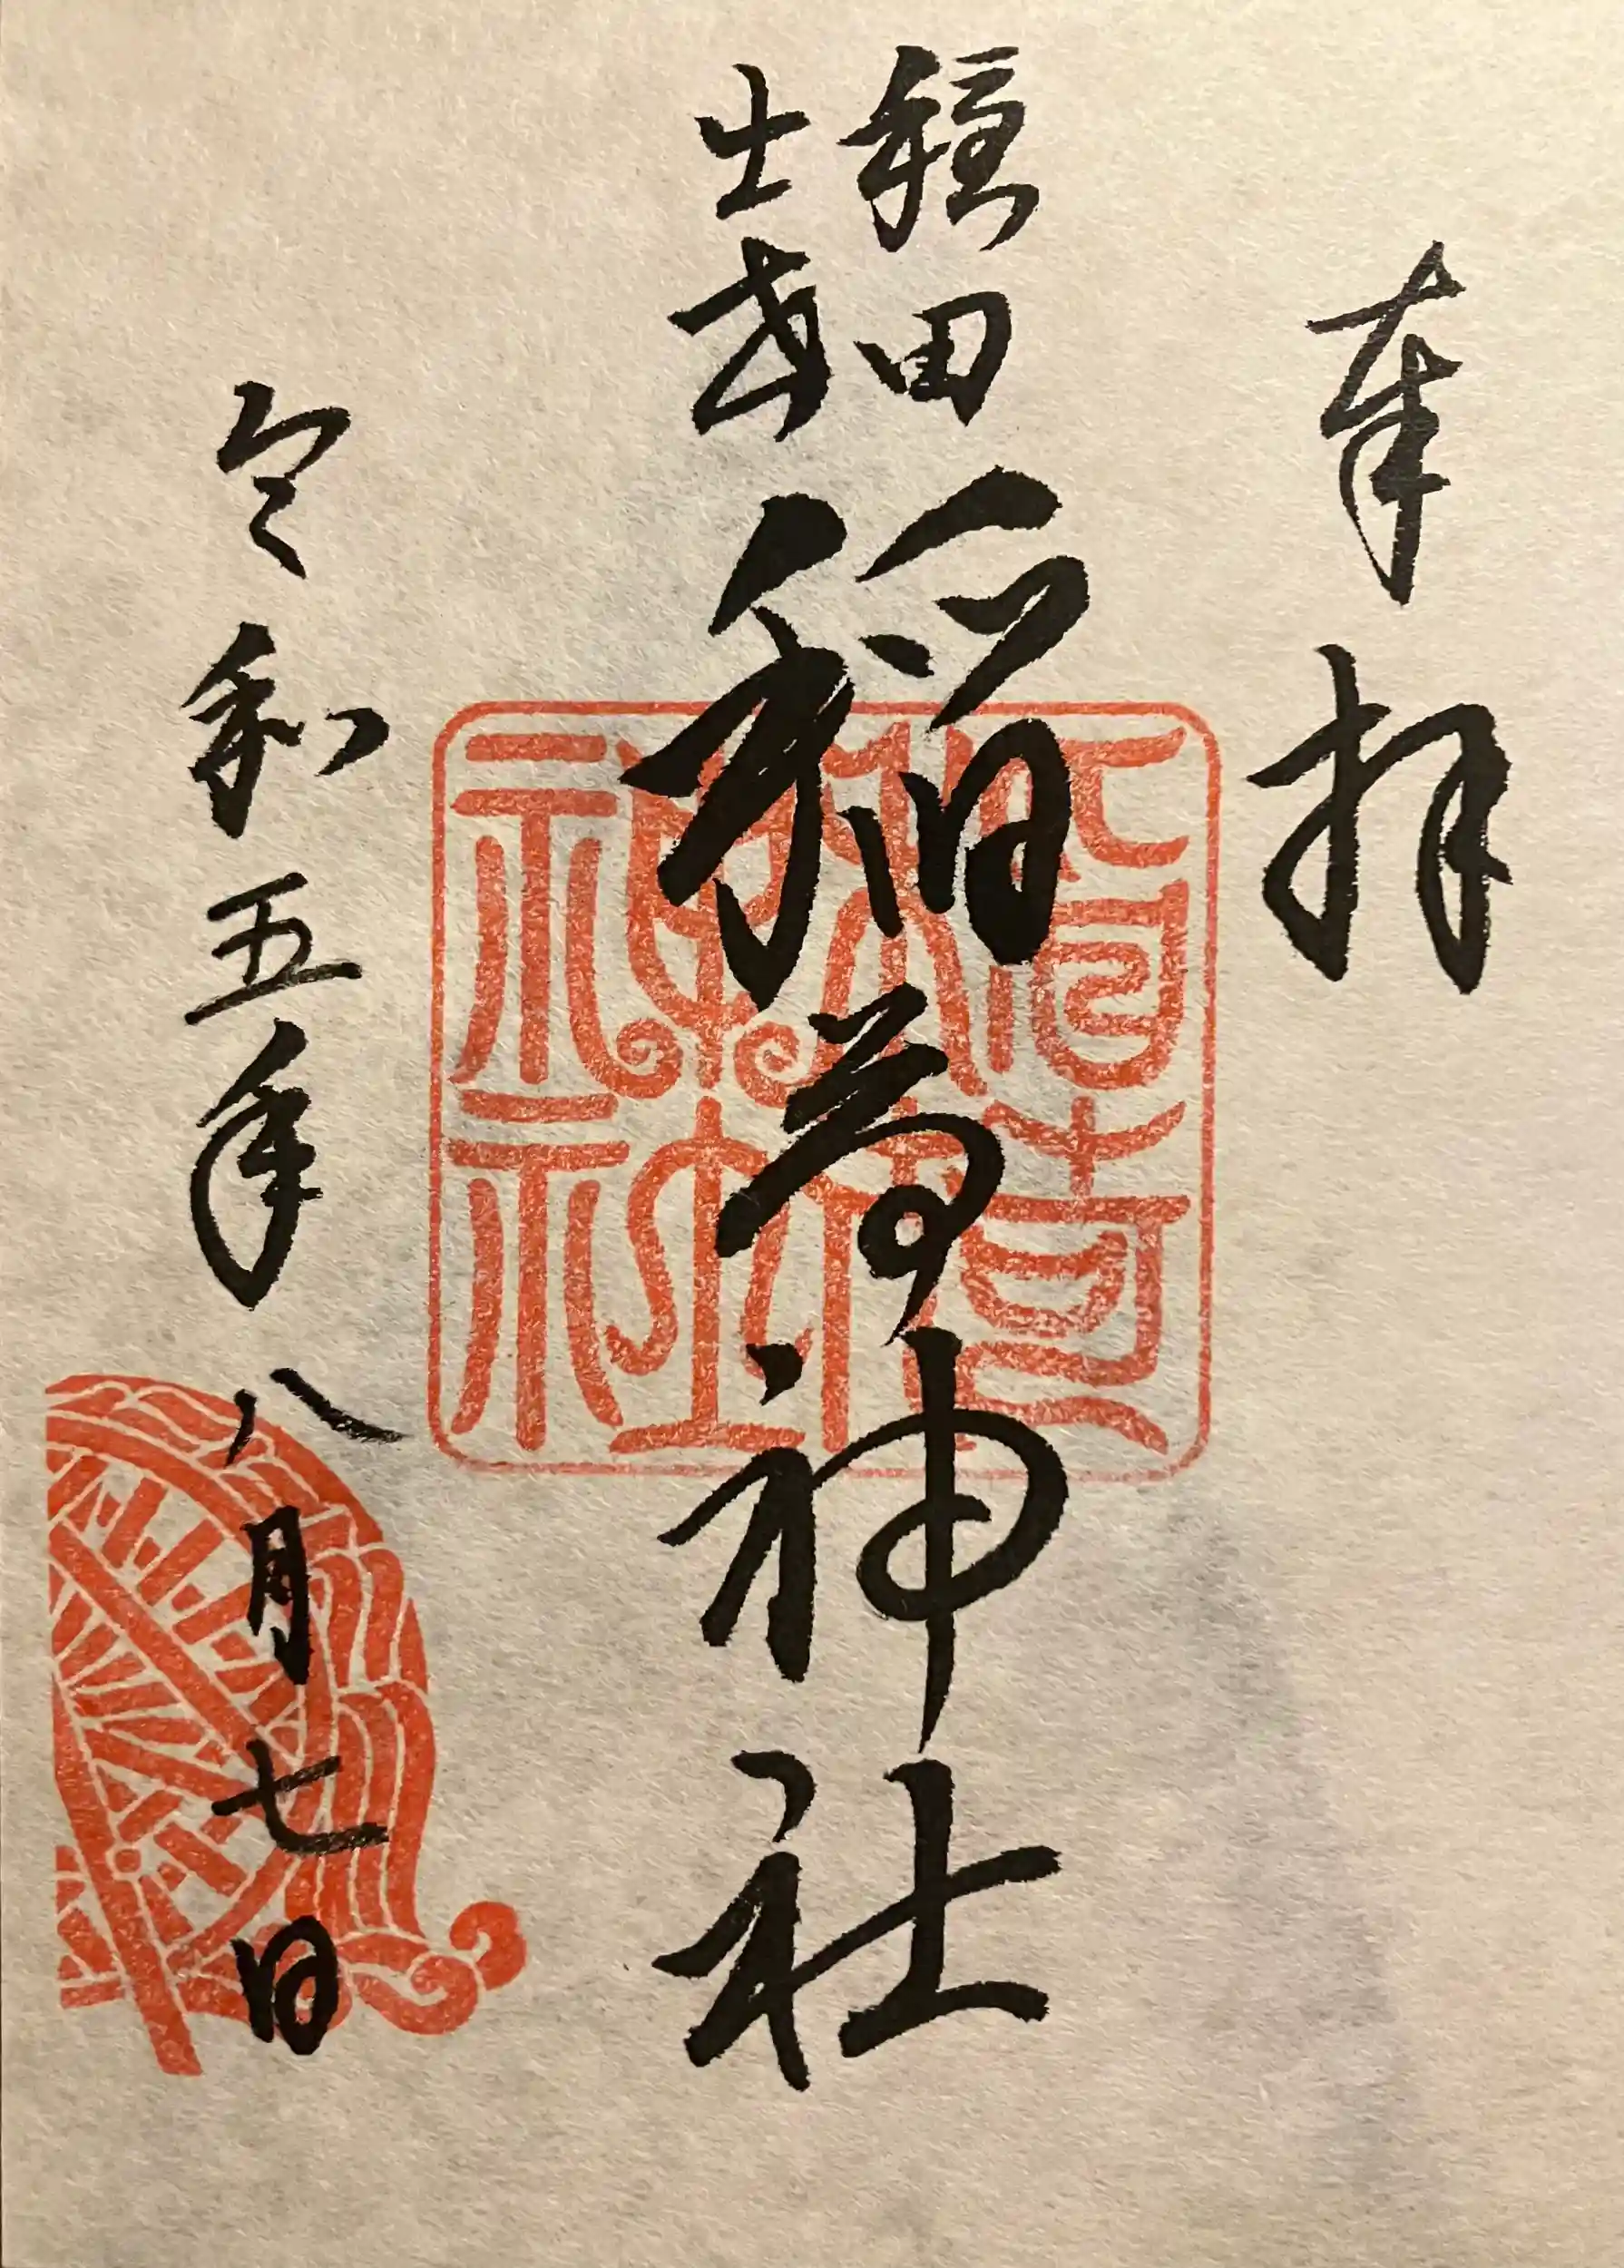 奉拝
田
稲荷神社
令和五年八月七日
稲荷
神社